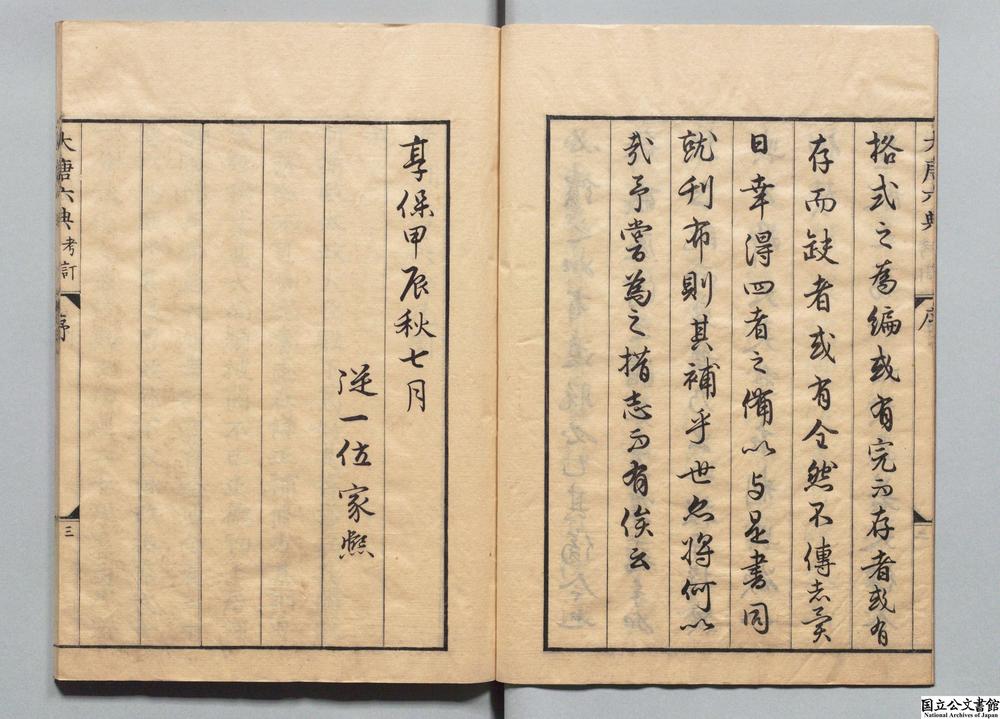 大唐六典考訂
序
格式之為編或有完而存者或有
存而缺者或有全然不傳者異
日幸得四者之備以与是書同
就刊布則其補乎世亦將何如
哉予嘗為之措志而有俟云
享保甲辰秋七月
從一位家熈
大唐六典考訂
序
三
国立公文書館
National Archives of Japan